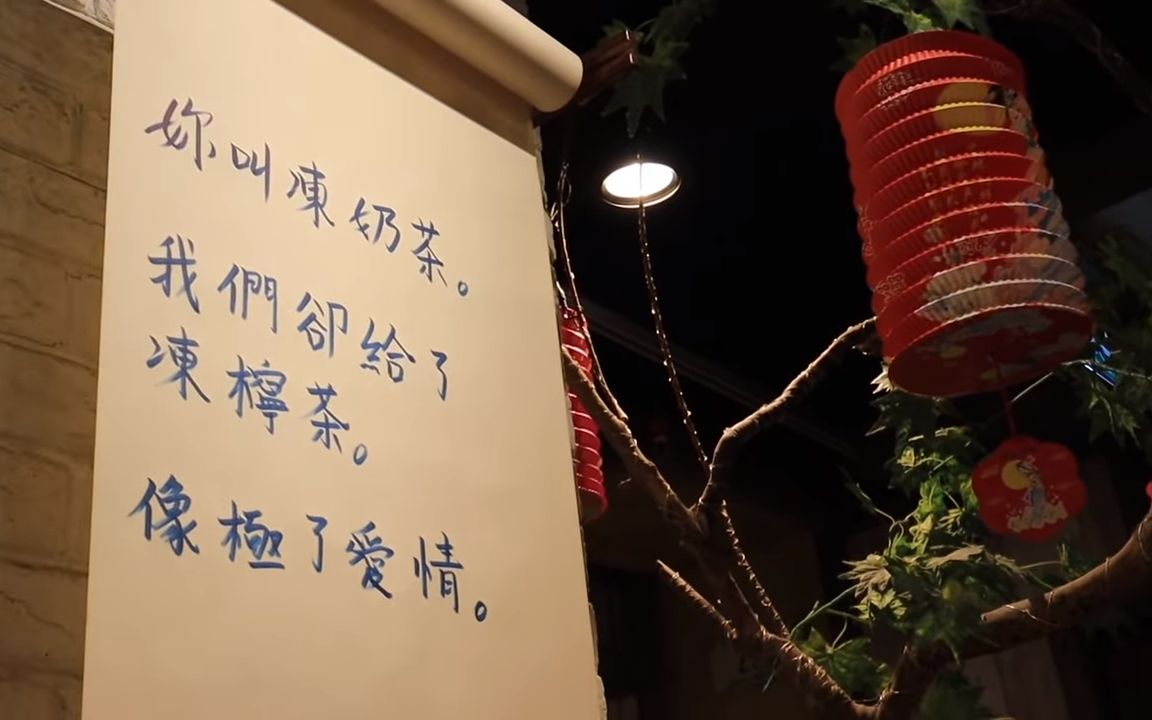 妳叫凍奶茶。
我們卻給了
凍檸茶。
像極了愛情。